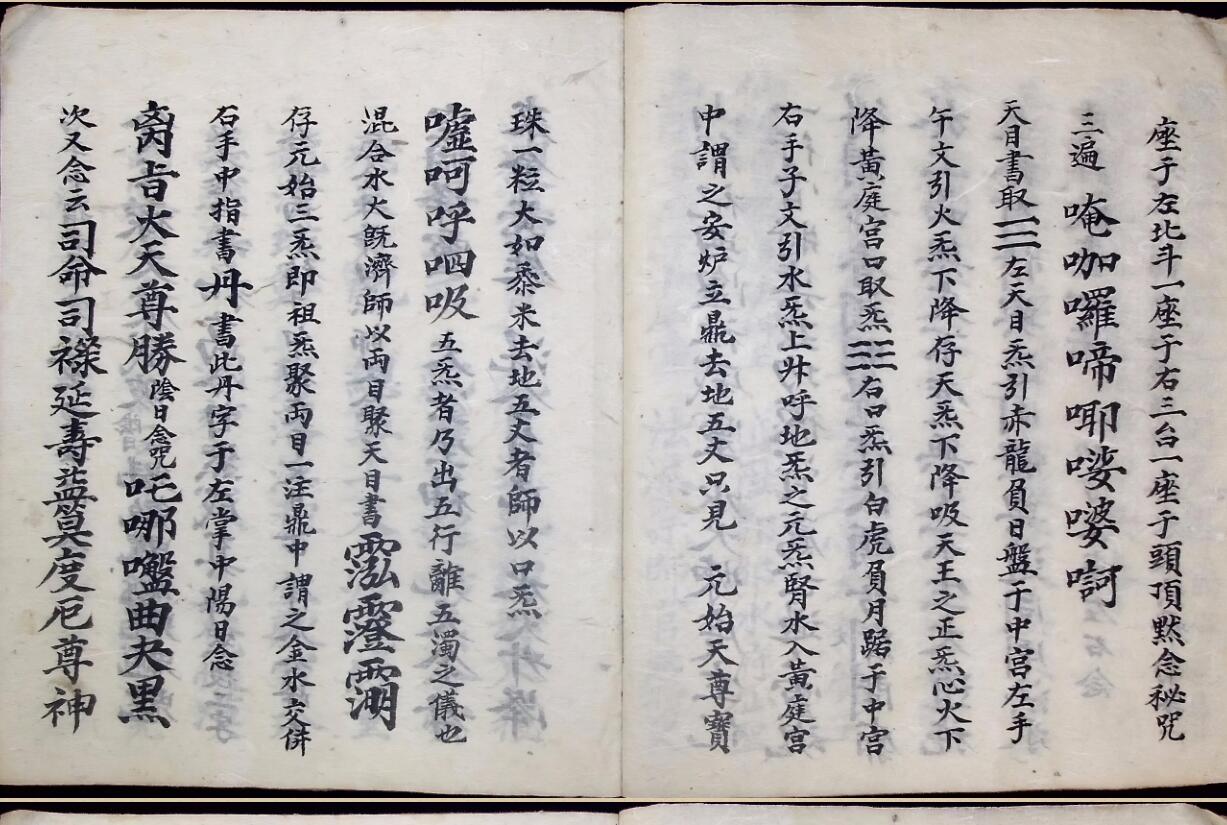 座于左北斗一座于右三台一座于頭頂黙念秘咒
三遍 唵咖囉啼唧娑婆訶
天目書取☲左天目炁引赤龍負日盤于中宫左手
午文引火炁下降存天炁下降吸天王之正炁心火下
降黄庭宫口取炁☵右口炁引白虎負月踞于中宫
右手子文引水炁上升呼地炁之元炁腎水入黄庭宫
中謂之安炉立鼎去地五丈只見 元始天尊寶
珠一粒大如黍米去地五丈者師以口炁
嘘呵呼呬吸五炁者乃出五行離五濁之儀也
混合水火既濟師以両目聚天目書
存元始三炁即祖炁聚両目一注鼎中謂之金水交併
右手中指書丹書此丹字于左掌中陽日念
火天尊勝陰日念咒吒哪曲夬黑
次又念云司命司祿延壽益筭度厄尊神